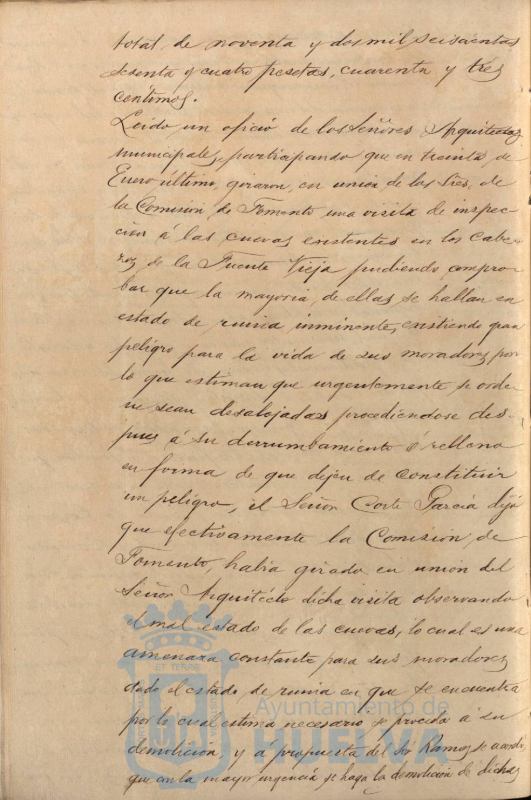 total, de noventa y dos mil seiscientas
sesenta y cuatro pesetas, cuarenta y tres
centimos.
Leido un oficio de los Señores Arquitectos
municipales, participando que en treinta de
Enero último, giraron, en union de los Sres. de
la Comision de Fomento una visita de inspec
cion á las cuevas existentes en los Cabe-
zos de la Fuente Vieja pudiendo compro
bar que la mayoria, de ellas se hallan en
estado de ruina inminente, existiendo gran
peligro para la vida de sus moradores, por
lo que estiman que urgentemente se orde
ne sean desalojadas procediendose des-
pues á su derrumbamiento ó relleno
en forma de que dejen de constituir
un peligro, el Señor Corte Garcia dijo
que efectivamente la Comision de
Fomento, habia girado en union del
Señor Arquitécto dicha visita observando
el mal estado de las cuevas, lo cual es una
amenaza constante para sus moradores
dado el estado de ruina en que se encuentra
por lo cual estima necesario se proceda á su
demolicion, y á propuesta del Sr Ramos se acordó,
que con la mayor urgencia, se haga la demolicion de dichas
ET TERRE
Ayuntamiento de
HUELVA